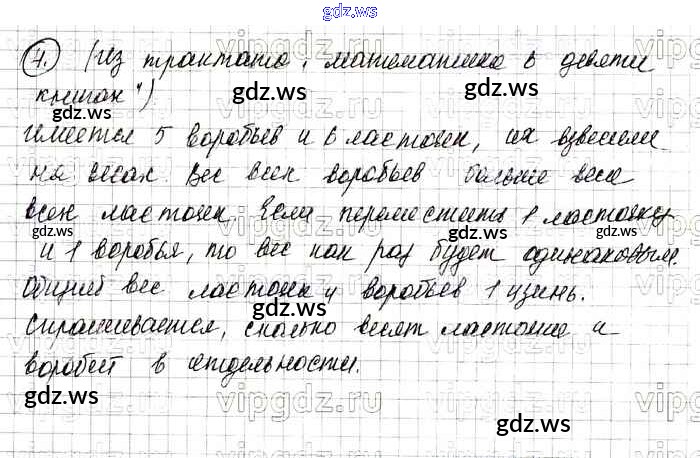 gdz.ws
7. (из трактата "математика в девяти
книгах")
имеется 5 воробьев и 6 ласточек, их взвесили
на весах. Вес всех воробьев больше веса
всех ласточек. Если переместить 1 ласточку
и 1 воробья, то вес как раз будет одинаковым.
Общий вес ласточек и воробьев 1 цзинь.
Спрашивается, сколько весят ласточка и
воробей в отдельности.
gdz.ws
gdz.ws
gdz.ws
gdz.ws
gdz.ws
gdz.ws
gdz.ws
gdz.ws
vipgdz.ru
vipgdz.ru
vipgdz.ru